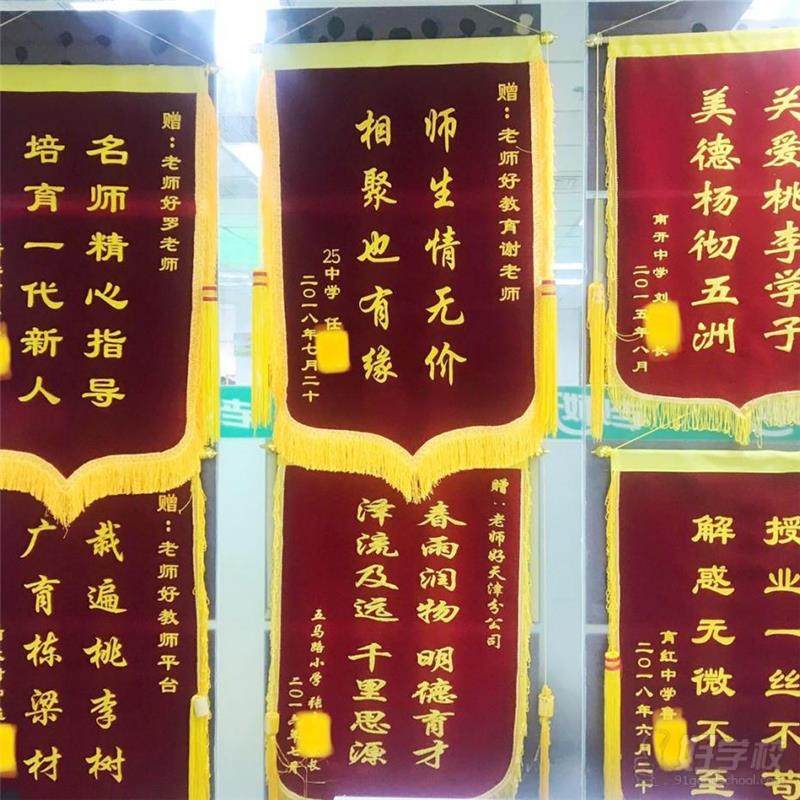 赠：老师好罗老师
名师精心指导
培育一代新人
赠：老师好教育谢老师
师生情无价
相聚也有缘
25中学 任
二〇一八年七月二十
关爱桃李学子
美德杨彻五洲
南开中学 刘 长
二〇一五年八月
赠：老师好教师平台
栽遍桃李树
广育栋梁材
赠：老师好天津分公司
春雨润物 明德育才
泽流及远 千里思源
五马路小学 张 长
授业一丝不苟
解惑无微不至
育红中学
二〇一八年六月二十
好学校
91goodschool.com